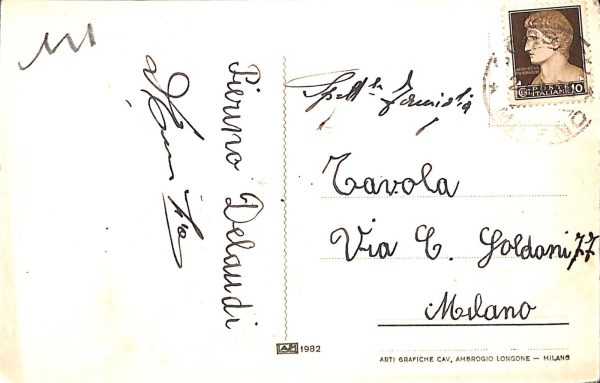 Pieruno Delaudi
Spett. Famiglia
Tavola
Via C. Goldoni 77
Milano
POSTE
ITALIANE
10
1982
ARTI GRAFICHE CAV. AMBROGIO LONGONE — MILANO